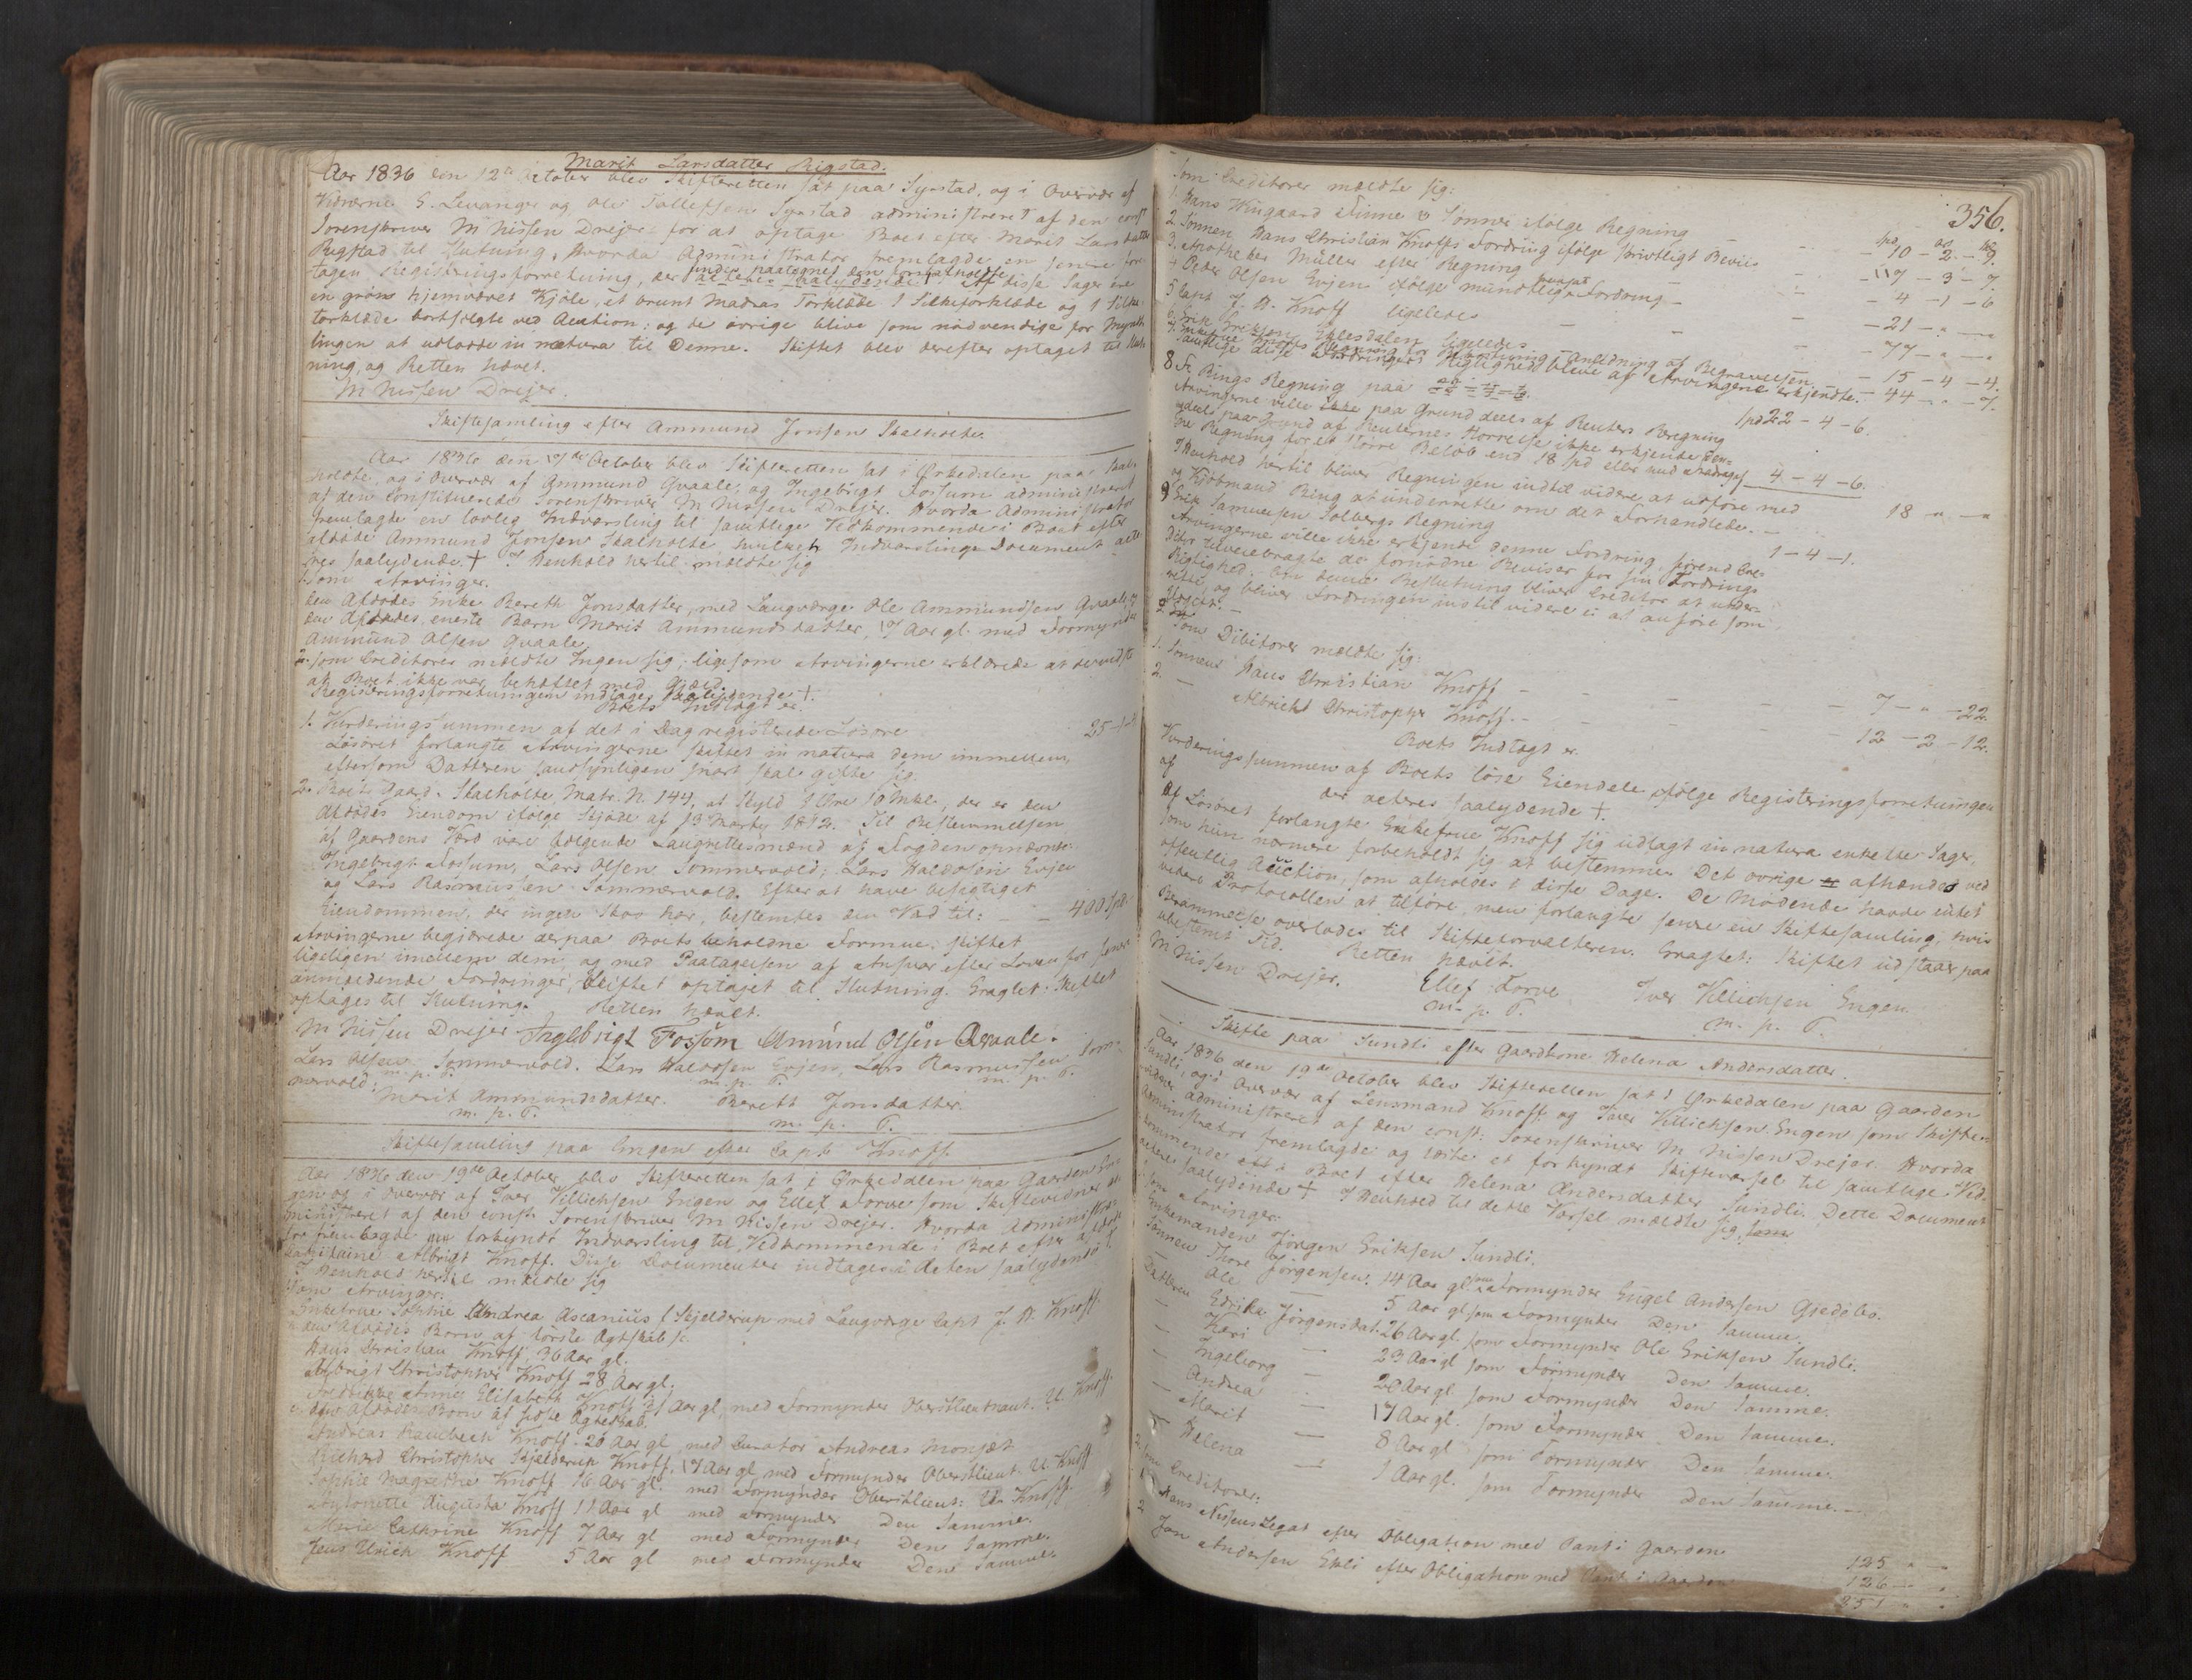 Marit Larsdatter Rigstad.
Aar 1836 den 12te October blev Skifteretten sat paa Syrstad, og i Overvær af
Vidnerne E. Levanger og Ole Tollefsen Syrstad administreret af den const.
Sorenskriver M Nissen Drejer for at optage Boet efter Marit Larsdatter
Rigstad til Slutning. Hvorda Administrator fremlagde en senere fore-
tagen Registeringsforretning, der acteres saalydende † Af disse Sager ere
en grøn hjemvævet Kjole, et brunt Madras Tørklæde 1 Silkeforklæde og 1 Silke-
tørklæde bortsolgte ved Auction; og de øvrige blive som nødvendige for Mynt-
lingen at udlodde in natura til Denne. Skiftet blev derefter optaget til Slut-
ning, og Retten hævet.
M Nissen Drejer.
Skiftesamling efter Ammund Jonsen Skalholte.
Aar 1836 den 17de October blev Skifteretten sat i Ørkedalen paa Skal-
holte, og i Overvær af Ammund Qvaale, og Ingebrigt Fossum administreret
af den constituerede Sorenskriver M Nissen Drejer. Hvorda Administrator
fremlagde en lovlig Indvarsling til samtlige Vedkommende i Boet efter
afdøde Ammund Jonsen Skalholte, hvilket Indvarslings Document acte-
res saalydende † I Henhold hertil mældte sig
1. Som Arvinger.
den Afdødes Enke Bereth Jonsdatter, med Laugværge Ole Ammundsen Qvaale, og
den Afdødes eneste Barn Marit Ammundsdatter, 17 Aar gl. med Formynder
Ammund Olsen Qvaale.
2. Som Creditorer mældte Ingen sig, ligesom Arvingerne erklærede at
at Boet ikke var behæftet med Gjæld.
Registeringsforretningen indtages saalydende †.
Boets Indtægt er.
1. Vurderingssummen af det i Dag registerede Løsøre 25-1-
Løsøret forlangte Arvingerne skiftet in natura dem imellem,
eftersom Datteren sandsynligen snart skal gifte sig.
2. Boets Gaard Skalholte, Matr. N. 144, at Skyld 1 Øre 10 Mkl., der er den
Afdødes Eiendom ifølge Skjøde af 13 Marts 1812. Til Bestemmelsen
af Gaardens Værd vare følgende Laugrettesmænd af Fogden opnævnte:
Ingebrigt Fossum, Lars Olsen Sommervold, Lars Haldosen Evjen
og Lars Rasmussen Sommervold. Efter at have besigtiget
Eiendommen, der ingen Skov har, bestemtes den Værd til: — — 400 Spd.
Arvingerne begjærede derpaa Boets beholdne Formue skiftet
ligeligen imellem dem, og med Paatagelsen af Ansvar efter Loven for senere
anmeldende Fordringer, Skiftet optaget til Slutning. Eragtet: Skiftet
optages til Slutning. Retten hævet.
M Nissen Drejer Ingebrigt Fossum Amund Olsen Qvaale.
Lars Olsen Sommervold. Lars Haldosen Evjen, Lars Rasmussen Som-
m. p. P. m. p. P. m. p. P.
mervold.
Marit Ammundsdatter. Bereth Jonsdatter.
m. p. P. m. p. P.
Skiftesamling paa Engen efter Capt Knoff.
Aar 1836 den 19de October blev Skifteretten sat i Ørkedalen paa Gaarden En-
gen og i Overvær af Iver Villichsen Engen og Ellef Forve som Skiftevidner ad-
ministreret af den const. Sorenskriver M Nissen Drejer. Hvorda Administra-
tor fremlagde forkyndt Indvarsling til Vedkommende i Boet efter afdøde
Kapitaine Albrigt Knoff. Disse Documenter indtages i Acten saalydende †.
I Henhold hertil mældte sig
1. Som Arvinger.
Enkefrue Sophie Andrea Ascanius f Skjelderup med Laugværge Capt J. A. Knoff.
den Afdødes Børn af første Ægteskab
Hans Christian Knoff 36 Aar gl.
Albrigt Christopher Knoff 28 Aar gl.
Fredrikke Anne Elisabeth Knoff 21 Aar gl, med Formynder Oberstlieutnant U. Knoff.
den Afdødes Børn af sidste Ægteskab.
Andreas Knoff 20 Aar gl, med Curator Andreas Monsæt
Richard Christopher Skjelderup Knoff, 17 Aar gl, med Formynder Oberstlieut. U. Knoff
Sophie Magrethe Knoff 16 Aar gl. med Formynder Oberstlieut: U. Knoff.
Antonette Augusta Knoff 11 Aar gl med Formynder Den Samme.
Marie Cathrine Knoff 7 Aar gl med Formynder Den Samme.
Jens Ulrich Knoff 5 Aar gl med Formynder Den Samme.
356.
Som Creditorer mældte sig:
1. Hans Wingaard Finne & Sønner ifølge Regning — 10 - 2 - 9.
2. Sønnen Hans Christian Knoffs Fordring ifølge skrivtligt Beviis — 117 - 3 - 7.
3. Apotheker Müller efter Regning — 4 - 1 - 6
4. Peder Olsen Evjen ifølge mundtlig Fordring — 21 - " - "
5. Capt. J. A. Knoff ligeledes — 77 - " - "
6. Erik Eriksen Eklesdalen ligeledes — 15 - 4 - 4.
7. Enkefrue Knoffs Regning for Bekostning i Anledning af Begravelsen — 44 - " - 7.
Samtlige disse Fordringers Rigtighed bleve af Arvingerne erkjendte.
8. Fr. Rings Regning paa Spd 22 - 4 - 6.
Arvingerne ville ikke paa Grund deels af Renters Beregning
deels paa Grund af Renternes Størrelse ikke erkjende den-
ne Regning for et større Beløb end 18 spd eller med Fradrag af 4 - 4 - 6.
I Henhold hertil bliver Regningen indtil videre at anføre med 18 " "
og Kjøbmand Ring at underrette om det Forhandlede. —
9. Erik Samuelsen Solbergs Regning 1 - 4 - 1.
Arvingerne ville ikke erkjende denne Fordring, førend Cre-
ditor tilveiebragte de fornødne Beviser for sin Fordrings
Rigtighed. Om denne Beslutning bliver Creditor at under-
rette, og bliver Fordringen indtil videre ei at anføre som
Som Debitorer mældte sig:
1. Sønnen Hans Christian Knoff — 7 - " - 22.
2. — Albricht Christopher Knoff. — 12 - 2 - 12.
Boets Indtægt er.
Vurderingssummen af Boets løse Eiendele ifølge Registeringsforretningen
der acteres saalydende †.
Af Løsøret forlangte Enkefrue Knoff sig udlagt in natura enkelte Sager,
som hun nærmere forbeholdt sig at bestemme. Det øvrige afhændes ved
offentlig Auction, som afholdes i disse Dage. De Mødende havde intet
videre Protocollen at tilføre, men forlangte senere en Skiftesamling, hvis
Berammelse overlodes til Skifteforvalteren. Eragtet: Skiftet udstaar paa
ubestemt Tid. Retten hævet.
M Nissen Drejer. Ellef Forve Iver Villichsen Engen
m. p. P. m. p. P.
Skifte paa Sundli efter Gaardkone Helena Andersdatter.
Aar 1836 den 19de October blev Skifteretten sat i Ørkedalen paa Gaarden
Sundli, og i Overvær af Lensmand Knoff og Iver Villichsen Engen som Skifte-
vidner administreret af den const: Sorenskriver M Nissen Drejer. Hvorda
Administrator fremlagde og læste et forkyndt Skiftevarsel til samtlige Ved-
kommende i Boet efter Helena Andersdatter Sundli. Dette Document
acteres saalydende † I Henhold til dette Varsel mældte sig
Som Arvinger:
Enkemanden Jørgen Eriksen Sundli.
Sønnen Thore Jørgensen. 14 Aar gl. som Formynder Engel Andersen Gjedølos.
— Ole — 5 Aar gl som Formynder Den Samme.
Datteren Edrika Jørgensdat. 26 Aar gl. som Formynder Ole Eriksen Sundli.
— Kari — 23 Aar gl som Formynder Den Samme.
— Ingeborg — 20 Aar gl. som Formynder Den Samme.
— Andrea — 17 Aar gl. som Formynder Den Samme.
— Marit — 8 Aar gl som Formynder Den Samme.
— Helena — 1 Aar gl. som Formynder Den Samme.
2. Som Creditorer:
1. Hans Nissens Legat efter Obligation med Pant i Gaarden 125 " "
2. Jon Andersen Ekli efter Obligation med Pant i Gaarden 126 " "
251 " "